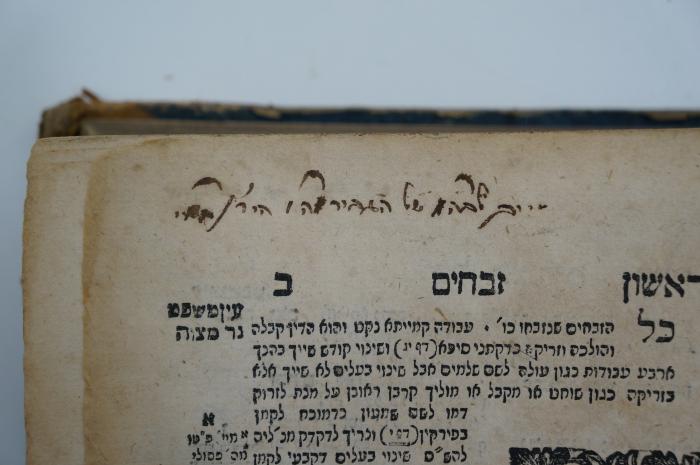 ראשון זבחים ב
עין משפט
נר מצוה
כל הזבחים שנזבחו כו׳ . עבודה קמייתא נקט והוא הדין קבלה
והולכה וזריקה כדקתני סיפא (דף יג) ושינוי קודש שייך בהנך
ארבע עבודות כגון עולה לשם שלמים אבל שינוי בעלים לא שייך אלא
בזריקה כגון שוחט או מקבל או מוליך קרבן ראובן על מנת לזרוק
דמו לשם שמעון כדמוכח לקמן
בפירקין (דף י) וצריך לדקדק מנ״ליה
להש״ס שינוי בעלים דקבעי לקמן
א
א מיי׳ פ״טו
מה׳ פסולי